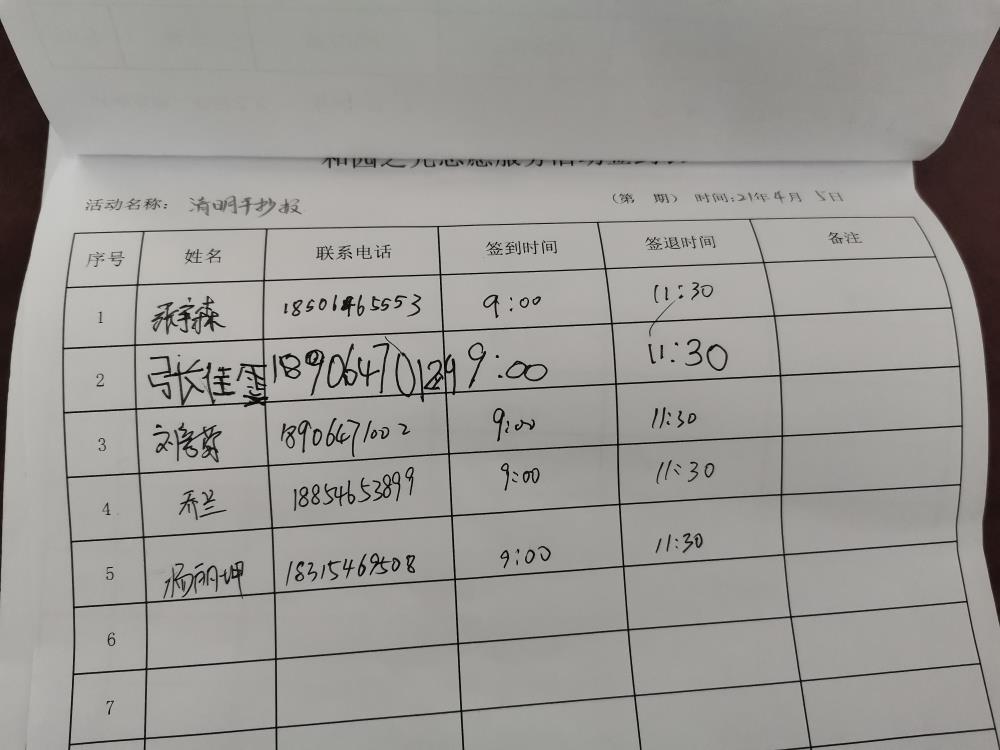 活动名称: 清明手抄报 (第 期) 时间:21年4月5日
序号 姓名 联系电话 签到时间 签退时间 备注
1 张宇森 18501465553 9:00 11:30
2 张佳雯 9:00 11:30
3 18906471002 9:00 11:30
4 乔兰 18854653899 9:00 11:30
5 杨丽坤 18315469508 9:00 11:30
6
7